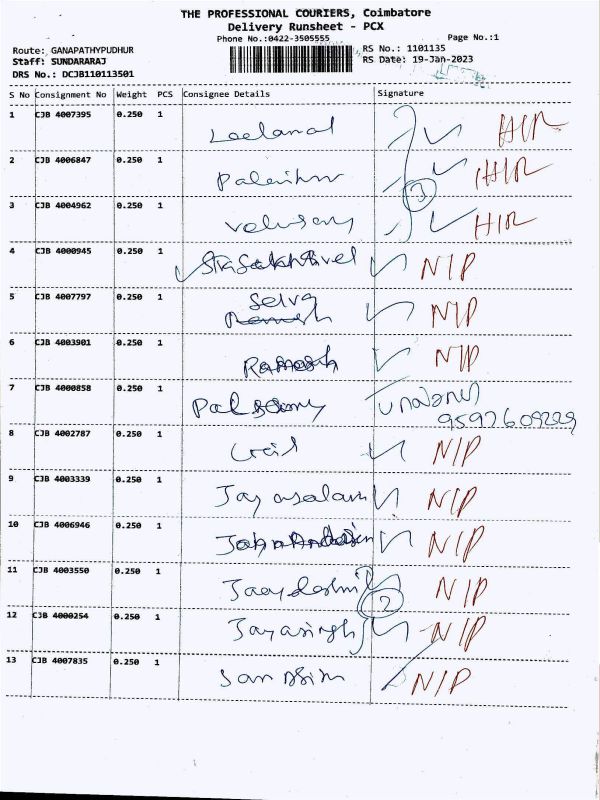 THE PROFESSIONAL COURIERS, Coimbatore
Delivery Runsheet - PCX
Phone No.:0422-3505555
Page No.:1
Route: GANAPATHYPUDHUR
RS No.: 1101135
Staff: SUNDARARAJ
RS Date: 19-Jan-2023
DRS No.: DCJB110113501
S No Consignment No Weight PCS Consignee Details Signature
1 CJB 4007395 0.250 1 H/R
2 CJB 4006847 0.250 1 H/R
3
3 CJB 4004962 0.250 1 H/R
4 CJB 4000945 0.250 1 N/P
5 CJB 4007797 0.250 1 Selva N/P
6 CJB 4003901 0.250 1 Ramesh N/P
7 CJB 4000858 0.250 1 Palsamy
8 CJB 4002787 0.250 1 N/P
9 CJB 4003339 0.250 1 N/P
10 CJB 4006946 0.250 1 N/P
11 CJB 4003550 0.250 1 N/P
2
12 CJB 4000254 0.250 1 Jayasingh N/P
13 CJB 4007835 0.250 1 N/P